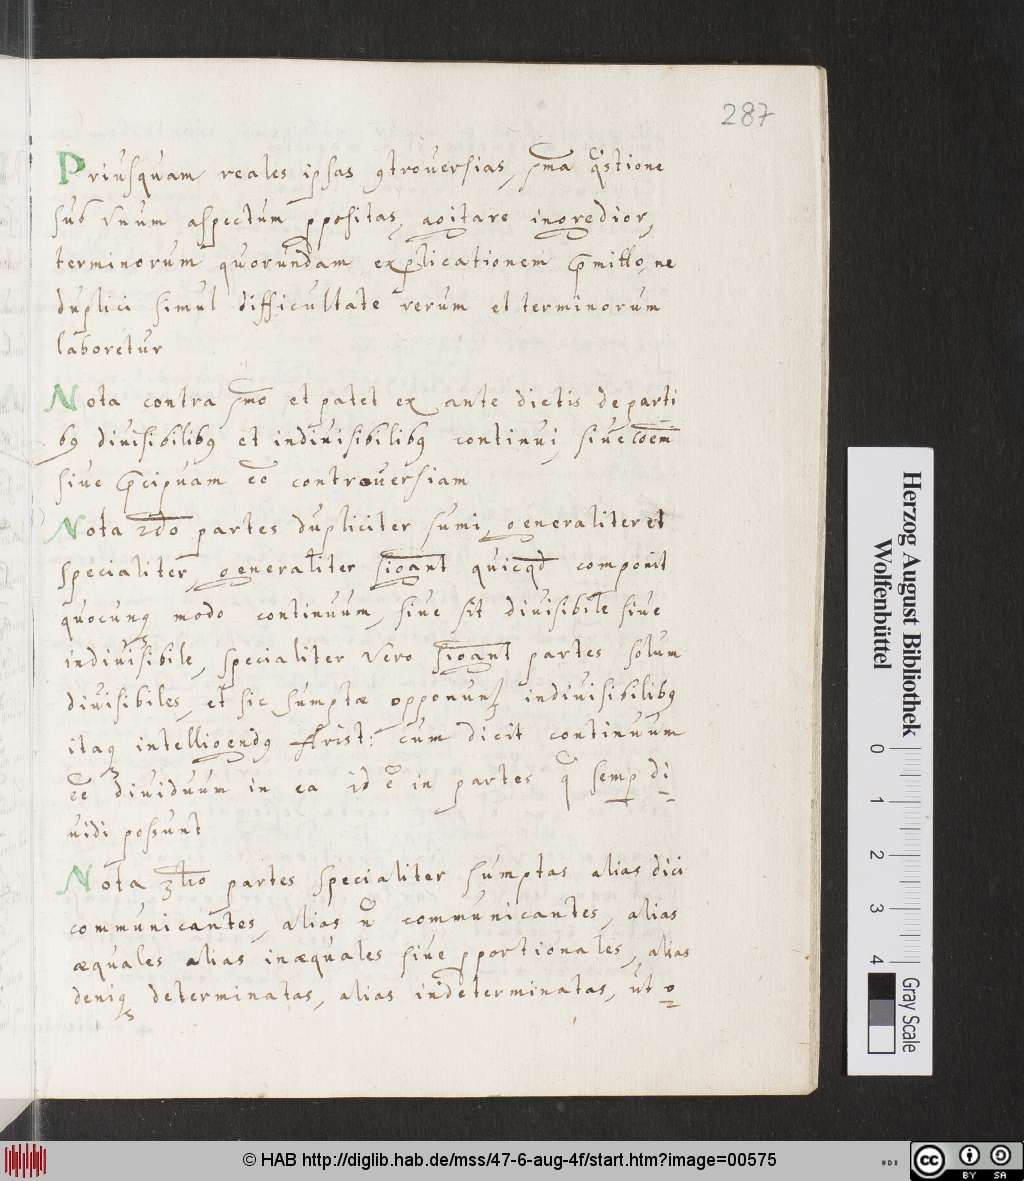 287
Priusquam reales ipsas 9troversias, pma qstione
sub vnum aspectum ppositas, agitare ingredior,
terminorum quorundam explicationem pmitto, ne
duplici simul difficultate rerum et terminorum
laboretur
Nota contra pmo et patet ex ante dictis de parti
b9 diuisibilib9 et indiuisibilib9 continui, siue coem
siue pcipuam eē controuersiam
Nota 2do partes dupliciter sumi, generaliter et
specialiter, generaliter sigant quicqd componit
quocunq modo continuum, siue sit diuisibile siue
indiuisibile, specialiter vero sigant partes solum
diuisibiles, et sic sumptæ opponunt indiuisibilib9
itaq intelligend9 Arist: cum dicit continuum
eē diuiduum in ea id ē in partes q semp di
uidi possunt
Nota 3tio partes specialiter sumptas alias dici
communicantes, alias ñ communicantes, alias
æquales alias inæquales siue pportionales, alias
deniq determinatas, alias indeterminatas, ut
Herzog August Bibliothek
Wolfenbüttel
0 1 2 3 4
Gray Scale
© HAB http://diglib.hab.de/mss/47-6-aug-4f/start.htm?image=00575
cc BY SA